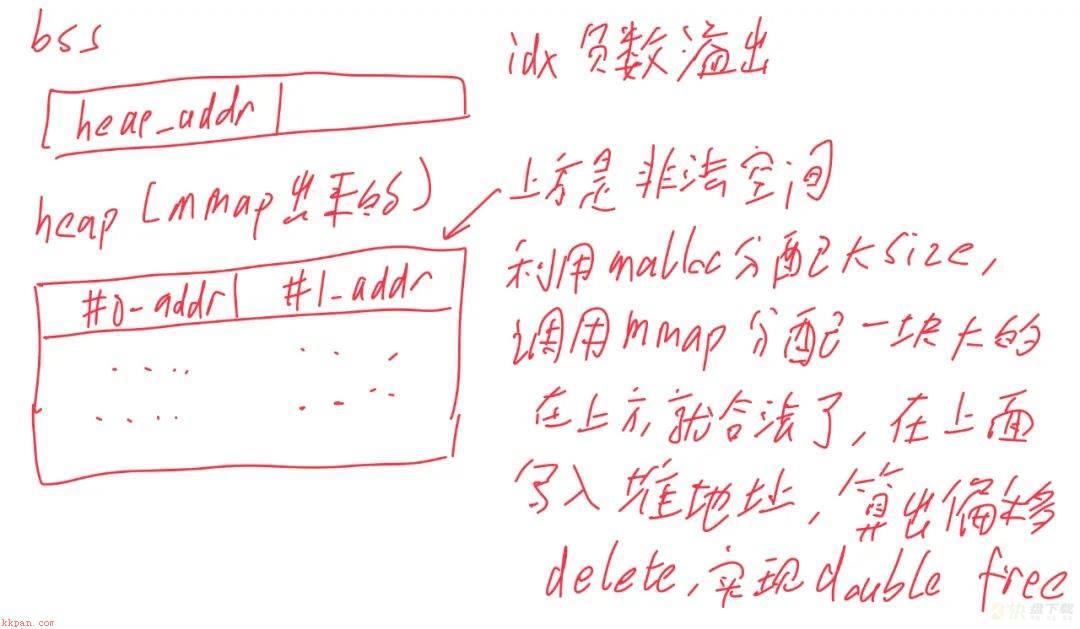 bss
heap_addr
heap (mmap出来的)
#0-addr
#1-addr
idx 负数溢出
上方是非法空间
利用malloc分配大size,
调用mmap分配一块大的
在上方就合法了,在上面
写入堆地址,算出偏移
delete,实现double free
kkpan.com
快盘下载